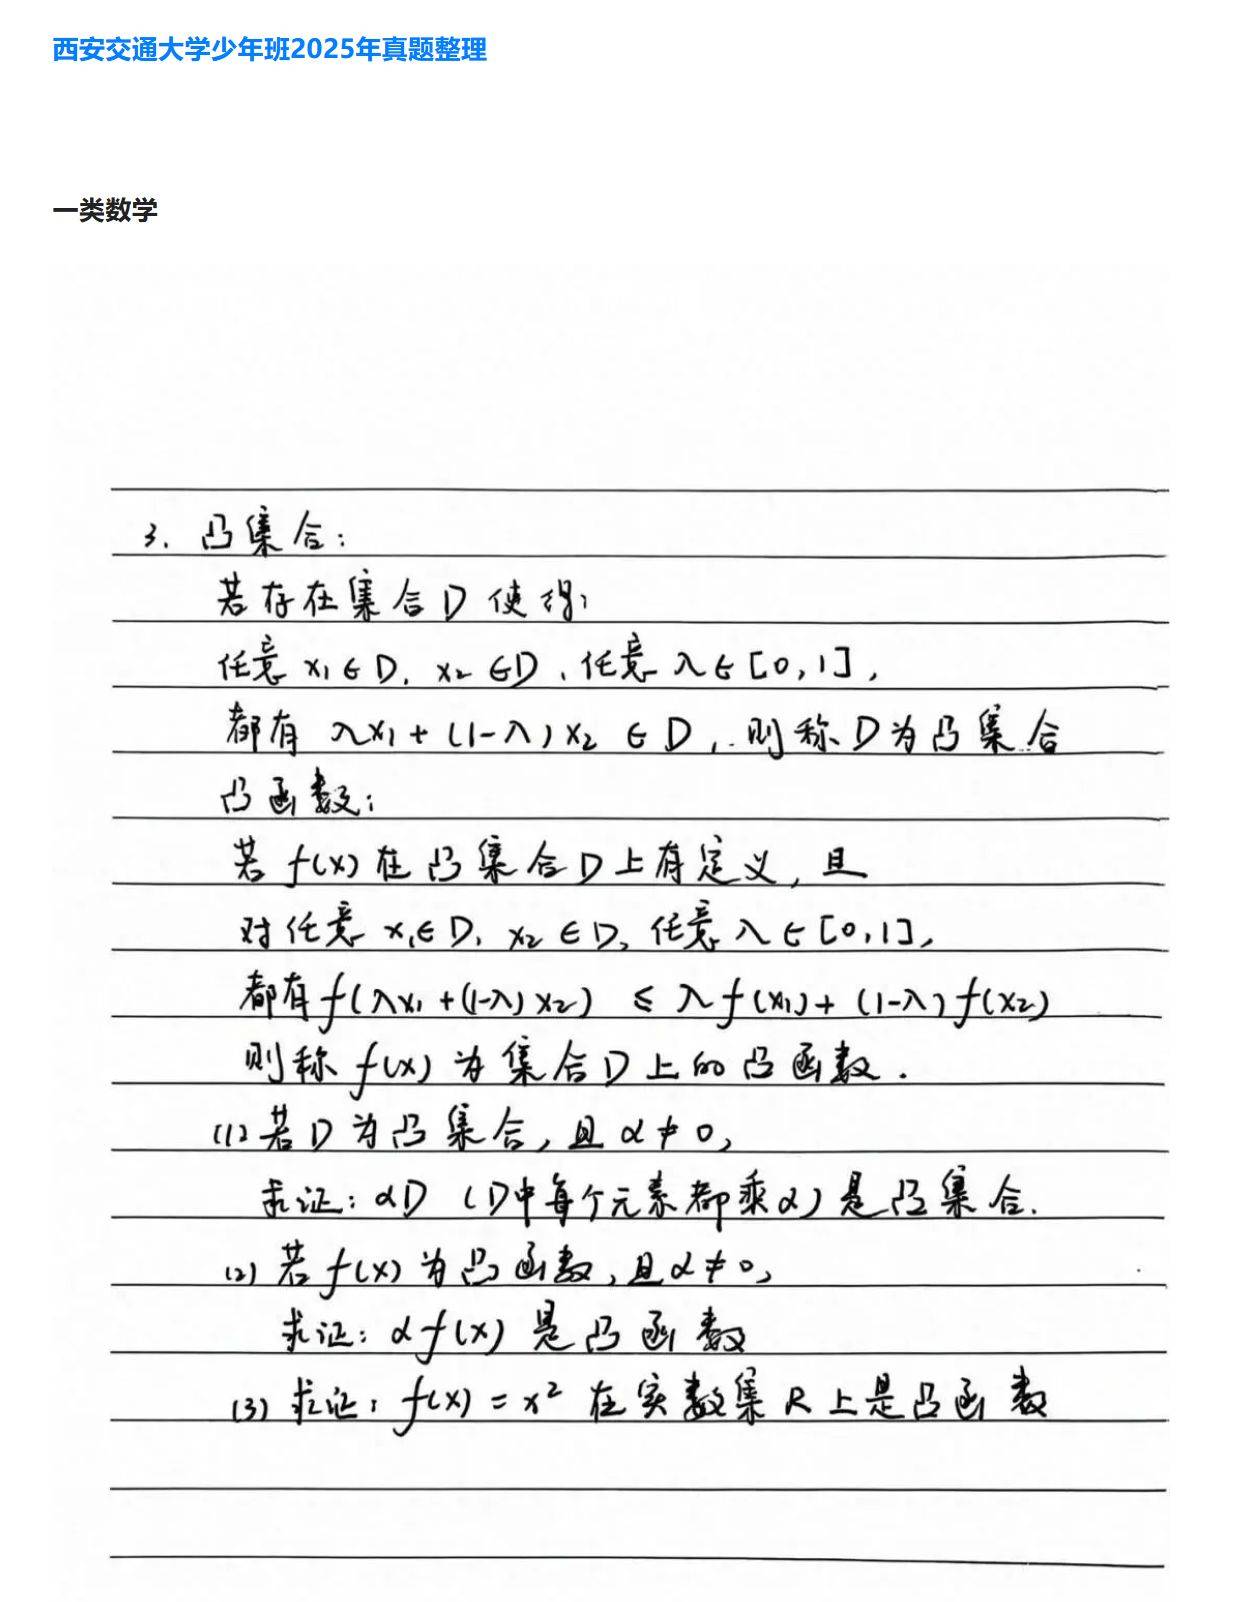 西安交通大学少年班2025年真题整理
一类数学
3. 凸集合:
若存在集合D使得:
任意 x₁∈D, x₂∈D, 任意 λ∈[0,1],
都有 λx₁+(1-λ)x₂ ∈D, 则称D为凸集合
凸函数:
若 f(x) 在凸集合D上有定义, 且
对任意 x₁∈D, x₂∈D, 任意 λ∈[0,1],
都有 f(λx₁+(1-λ)x₂) ≤ λf(x₁)+(1-λ)f(x₂)
则称 f(x) 为集合D上的凸函数.
(1) 若D为凸集合, 且 α≠0,
求证: αD (D中每个元素都乘α) 是凸集合.
(2) 若 f(x) 为凸函数, 且 α≠0,
求证: αf(x) 是凸函数
(3) 求证: f(x)=x² 在实数集R上是凸函数